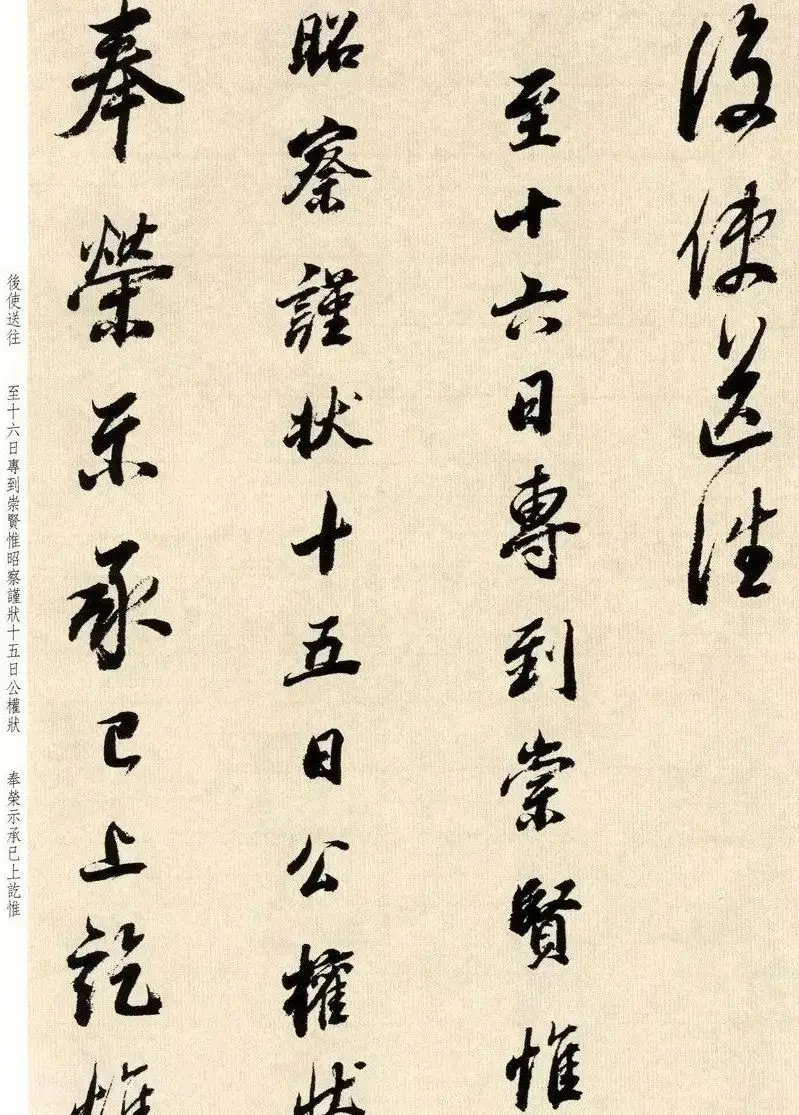 後使送往
至十六日專到崇賢惟
昭察謹狀十五日公權狀
奉榮示承已上訖惟
後使送往 至十六日專到崇賢惟昭察謹狀十五日公權狀 奉榮示承已上訖惟